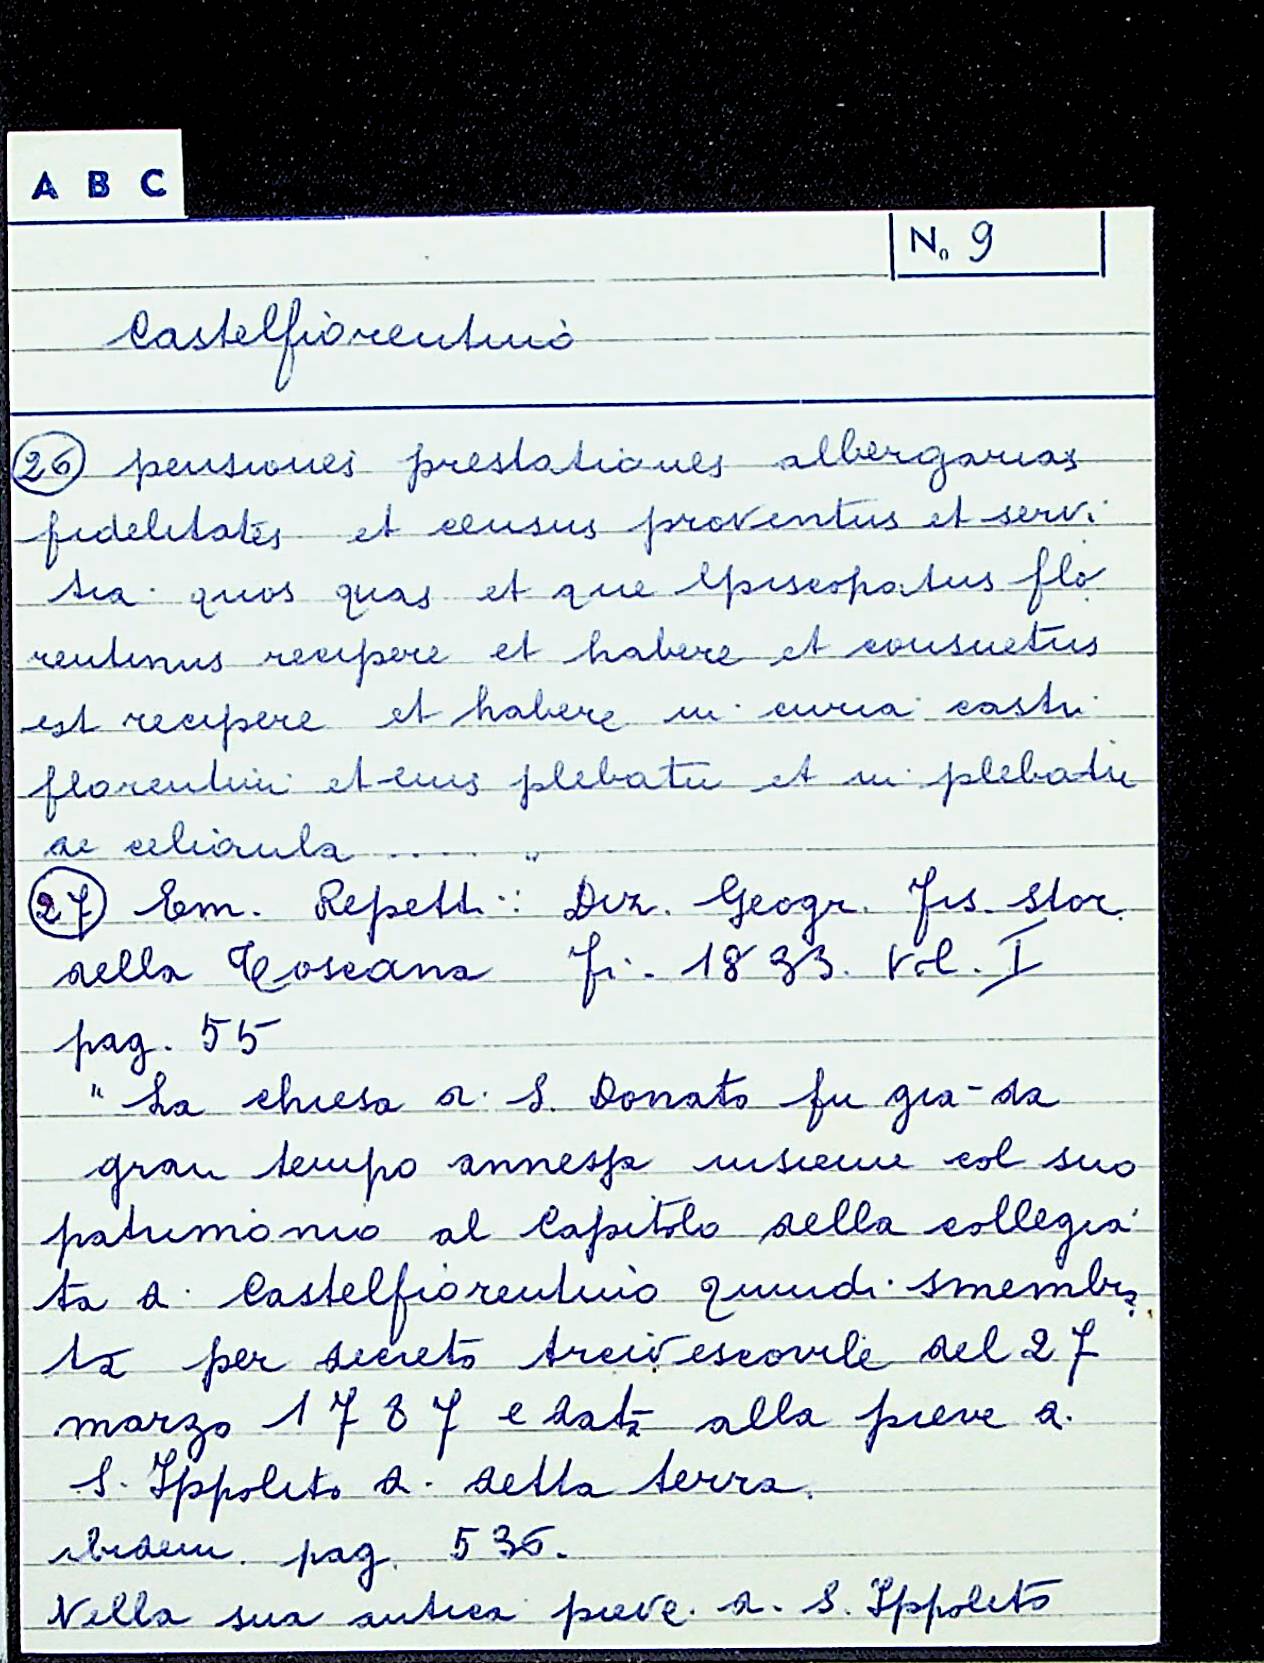 A B C
N. 9
Castelfiorentino
26 pensiones prestationes albergarias
fidelitates et census proventus et servi
tia quos quas et que Episcopatus flo
rentinus recipere et habere et consuetus
est recipere et habere in curia castri
florentini et eius plebatu et in plebatu
de celiaula ..... "
27 Em. Repetti: Diz. Geogr. Fis. Stor.
della Toscana Fi. 1833. Vol. I
pag. 55
" La chiesa di S. Donato fu già da
gran tempo annessa insieme col suo
patrimonio al Capitolo della collegia
ta di Castelfiorentino quindi smembra
ta per decreto arcivescovile del 27
marzo 1787 e data alla pieve di
S. Ippolito di detta terra.
ibidem. pag. 536.
Nella sua antica pieve di S. Ippolito